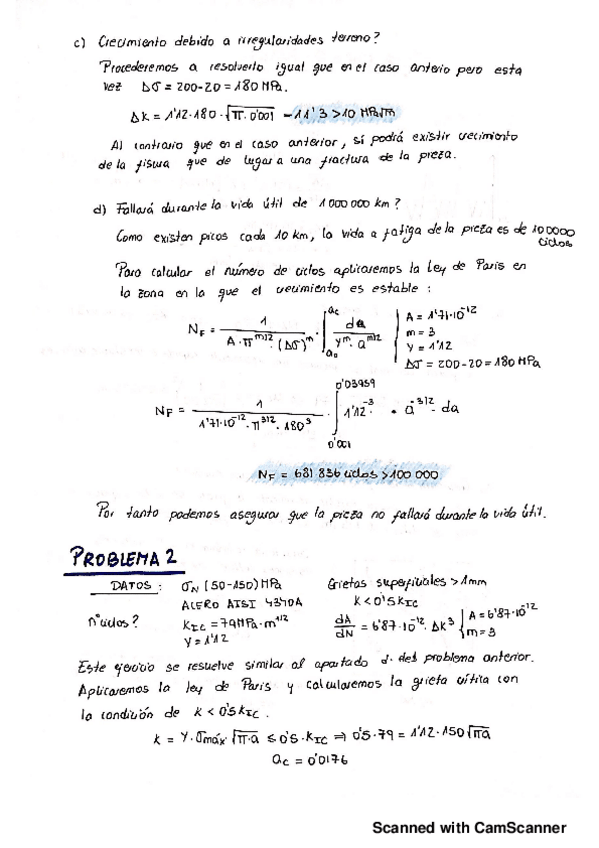 c) Crecimiento debido a irregularidades terreno?
Procederemos a resolverlo igual que en el caso anterio pero esta
vez Δσ = 200-20 = 180 MPa.
ΔK = 1'12·180·√π·0'001 - 11'3 > 10 MPa√m
Al contrario que en el caso anterior, sí podrá existir crecimiento
de la fisura que de lugar a una fractura de la pieza.
d) Fallará durante la vida útil de 1 000 000 km?
Como existen picos cada 10 km, la vida a fatiga de la pieza es de 100000
ciclos
Para calcular el número de ciclos aplicaremos la Ley de Paris en
la zona en la que el crecimiento es estable :
N_F = 1 / (A·π^(m/2)·(Δσ)^m) · ∫_(a_0)^(a_c) da / (Y^m·a^(m/2))
A = 1'71·10^-12
m = 3
Y = 1'12
Δσ = 200-20 = 180 MPa
N_F = 1 / (1'71·10^-12·π^(3/2)·180^3) · ∫_(0'001)^(0'03959) 1'12^-3 · a^(-3/2) · da
N_F = 681 836 ciclos > 100 000
Por tanto podemos asegurar que la pieza no fallará durante la vida útil.
PROBLEMA 2
DATOS : σ_N (50-150) MPa Grietas superficiales > 1mm
ACERO AISI 4340A K < 0'5 K_IC
nº ciclos? K_IC = 79 MPa·m^(1/2) dA/dN = 6'87·10^-12·ΔK^3 A = 6'87·10^-12
Y = 1'12 m = 3
Este ejercicio se resuelve similar al apartado d. del problema anterior.
Aplicaremos la ley de Paris y calcularemos la grieta crítica con
la condición de K < 0'5 K_IC .
K = Y·σ_máx·√π·a ≤ 0'5·K_IC ⇒ 0'5·79 = 1'12·150√πa
a_c = 0'0176
Scanned with CamScanner